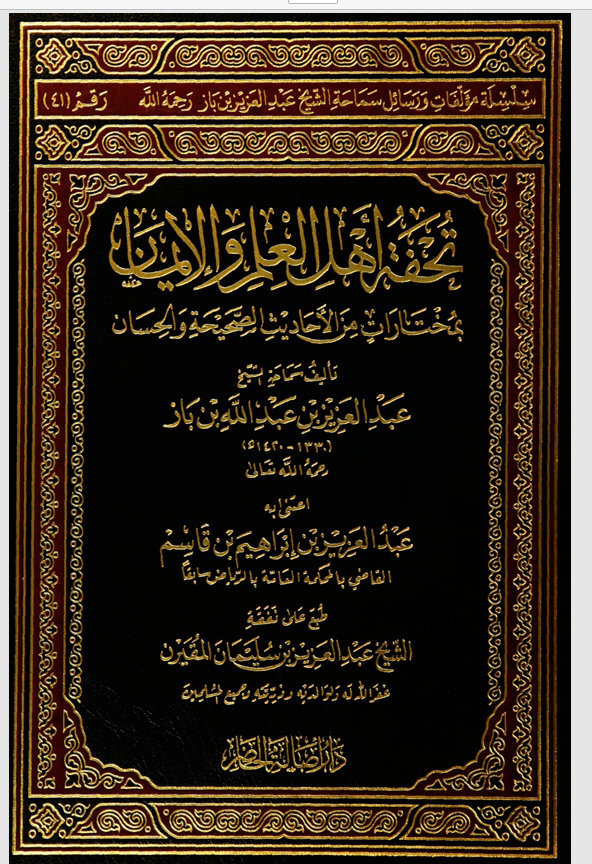 سِلْسِلَة مُؤَلَّفَاتِ وَرَسَائِل سَمَاحَةِ الشَّيْخِ عَبْدِ العَزِيْزِ بْنِ بَاز رَحِمَهُ اللَّه رَقم (٤١)
تُحْفَةُ أَهْلِ العِلْمِ وَالإِيمَانِ
بِمُخْتَارَاتٍ مِنَ الأَحَادِيْثِ الصَّحِيْحَةِ وَالحِسَان
تأليفُ سَمَاحَةِ الشَّيْخ
عَبْدِ العَزِيْزِ بْنِ عَبْدِ اللَّهِ بْنِ بَاز
(١٣٣٠ - ١٤٢٠هـ)
رحمَهُ اللَّه تعَالى
اعتنى به
عَبْدُ العَزِيْزِ بْنِ إِبْرَاهِيمَ بْنِ قَاسِمْ
القاضي بالمحكمة العامّة بالرّياض سابقاً
طُبعَ عَلى نَفَقَةِ
الشَّيْخ عَبْدِ العَزِيْزِ بْنِ سُلَيْمَانَ المُقَيْرِن
غفرَ اللّه له ولوَالديْه وذرّيّتهِ وجميعِ المُسْلمِيْن
دَارُ أَصَالَةِ الحَاضِر